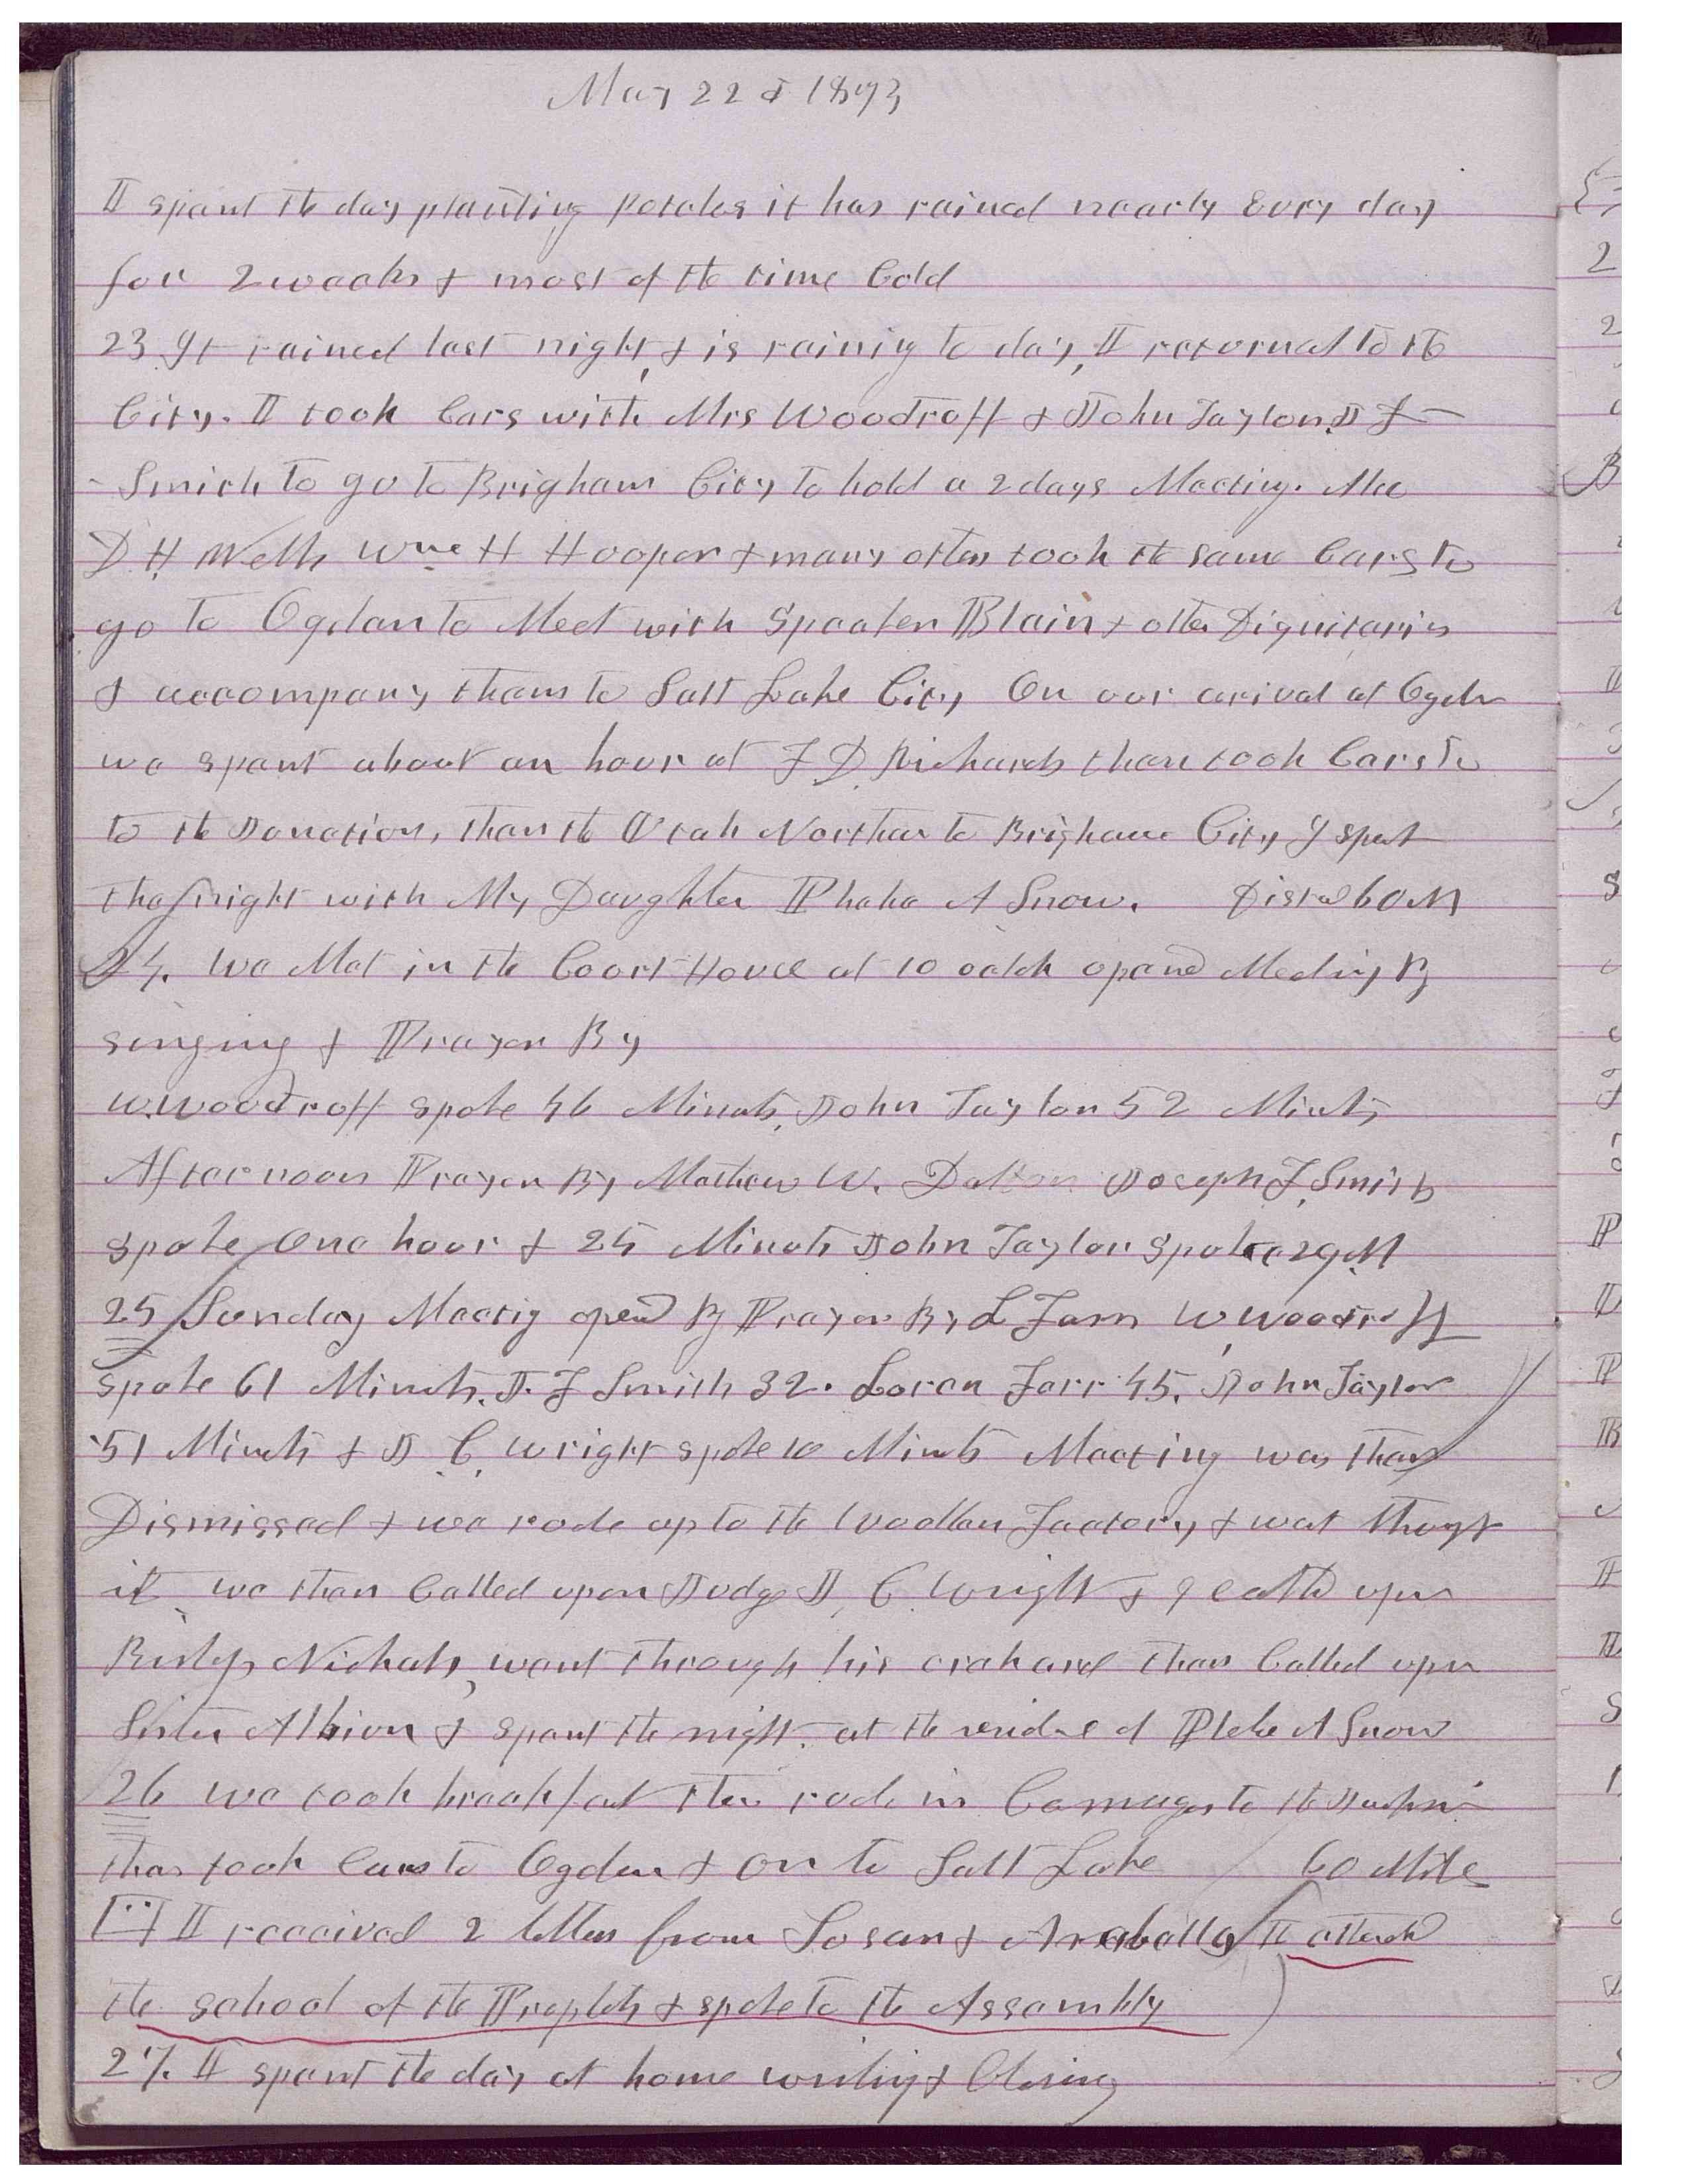 May 22d 1873
I spent the day planting Potatoes it has rained nearly Evry day
for 2 weeks & most of the time Cold
23 It rained last night, & is rainig to day, I returned to the
City. I took Cars with Mrs Woodruff & John Taylor J F
Smith to go to Brigham City to hold a 2 days Meeting.
D. H. Wells Wm H Hooper & many others took the same Cars to
go to Ogden to Meet with Speaker Blain & other Dignitaries
& accompany them to Salt Lake City On our arival at Ogden
we spent about an hour at F D. Richards then took Cars to
to the Junction, then the Utah Northern to Brigham City I spent
the night with My Daughter Phebe A Snow. Dista 60 M
24. We Met in the Court House at 10 oclok opened Meeting By
singing & Prayer By
W. Woodruff spoke 46 Minuts, John Taylor 52 Minuts
Afternoon Prayer By Mathew W. Dalton Joseph F. Smith
spoke One hour & 25 Minuts John Taylor spoke 29 M
25 Sunday Meetig opend By Prayer By L Farr W. Woodruff
spoke 61 Minuts. J. F Smith 32. Loren Farr 45. John Taylor
51 Minuts & J C. Wright spoke 10 Minuts Meeting was then
Dismissed & we rode up to the Woollen Factory & wet through
it we then Called upon Judge J. C. Wright & I calld upon
Bishop Nichols, went through his orchard then Called upon
Sister Albion & spent the night at the residence of Phebe A Snow
26 we took breakfast then rode in Carriages to the Junction
then took Cars to Ogden & on to Salt Lake 60 Mile
I received 2 letters from Susan & Arabella I attend
the school of the Prophets & spoke to the Assembly
27. I spent the day at home writing & Choring